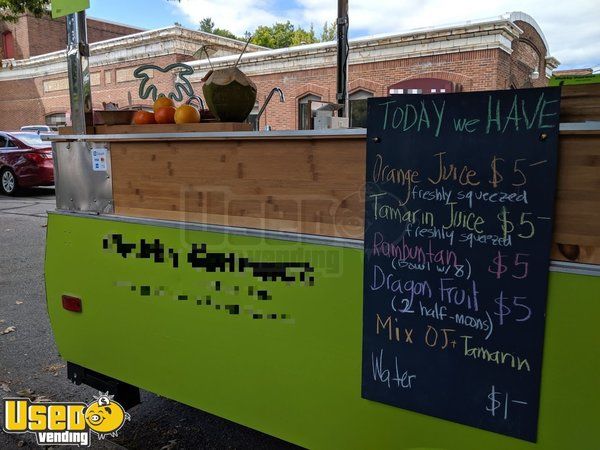 TODAY we HAVE
Orange Juice $5-
freshly squeezed
Tamarin Juice $5-
freshly squeezed
Rambuntan $5
(bowl w/8)
Dragon Fruit $5
(2 half-moons)
Mix OJ + Tamarin
Water $1-
USED
vending
USED
vending